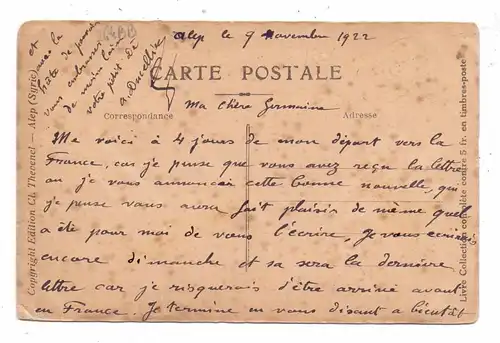 Alep le 9 Novembre 1922
CARTE POSTALE
Ma Chère Germaine
Correspondance
Adresse
Me voici à 4 jours de mon départ vers la
France, car je pense que vous avez reçu la lettre
ou je vous annonçais cette bonne nouvelle, qui
je pense vous aura fait plaisir de même quel
a été pour moi de vous l'écrire, Je vous écrirais
encore dimanche et sa sera la dernière
lettre car je risquerais d'être arrivé avant
en France. Je termine en vous disant a bientôt
et
avec la
hâte de pouvoir
vous embrasser
de moins loin
votre petit De
Copyright Edition Cl. Thevenet — Alep (Syrie)
Livre Collection complète contre 5 fr. en timbres-poste